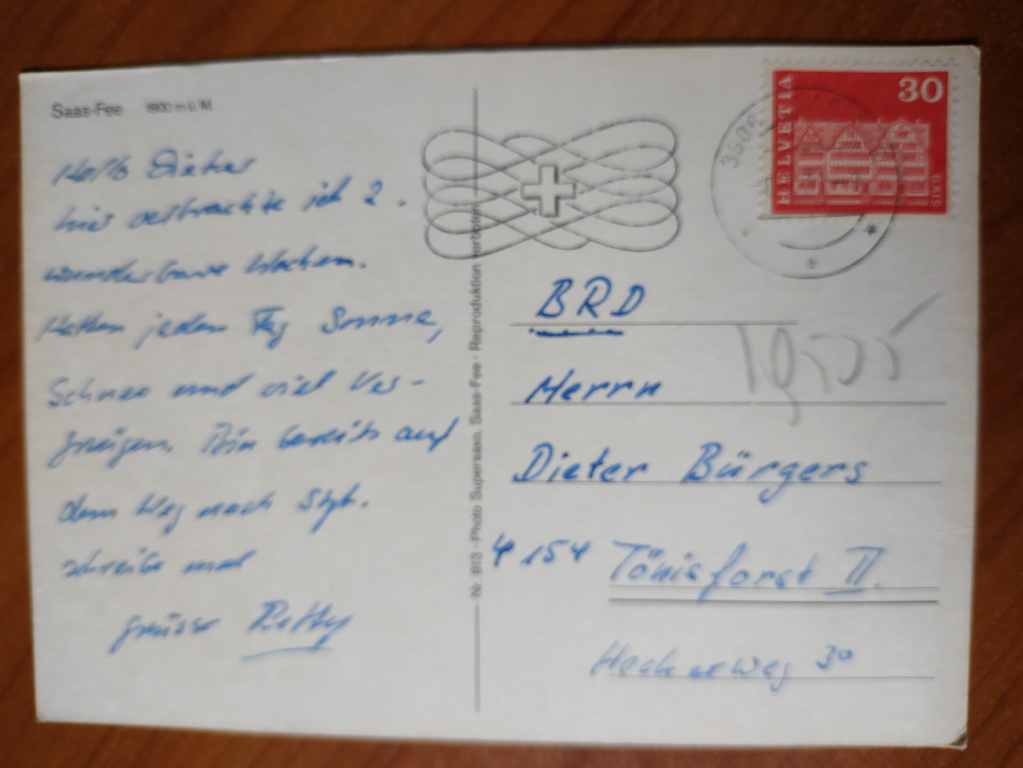 Saas-Fee 1800 m ü. M.
Hallo Dieter
hier verbrachte ich 2.
wunderbare Wochen.
Hatten jeden Tag Sonne,
Schnee und viel Ver-
gnügen. Bin bereits auf
dem Weg nach
schreibe mal
grüsse
Nr. 813 · Photo Supersaxo, Saas-Fee · Reproduktion verboten
HELVETIA
30
GAIS
390
BRD
Herrn
Dieter Bürgers
4154 Tönisforst II.
30